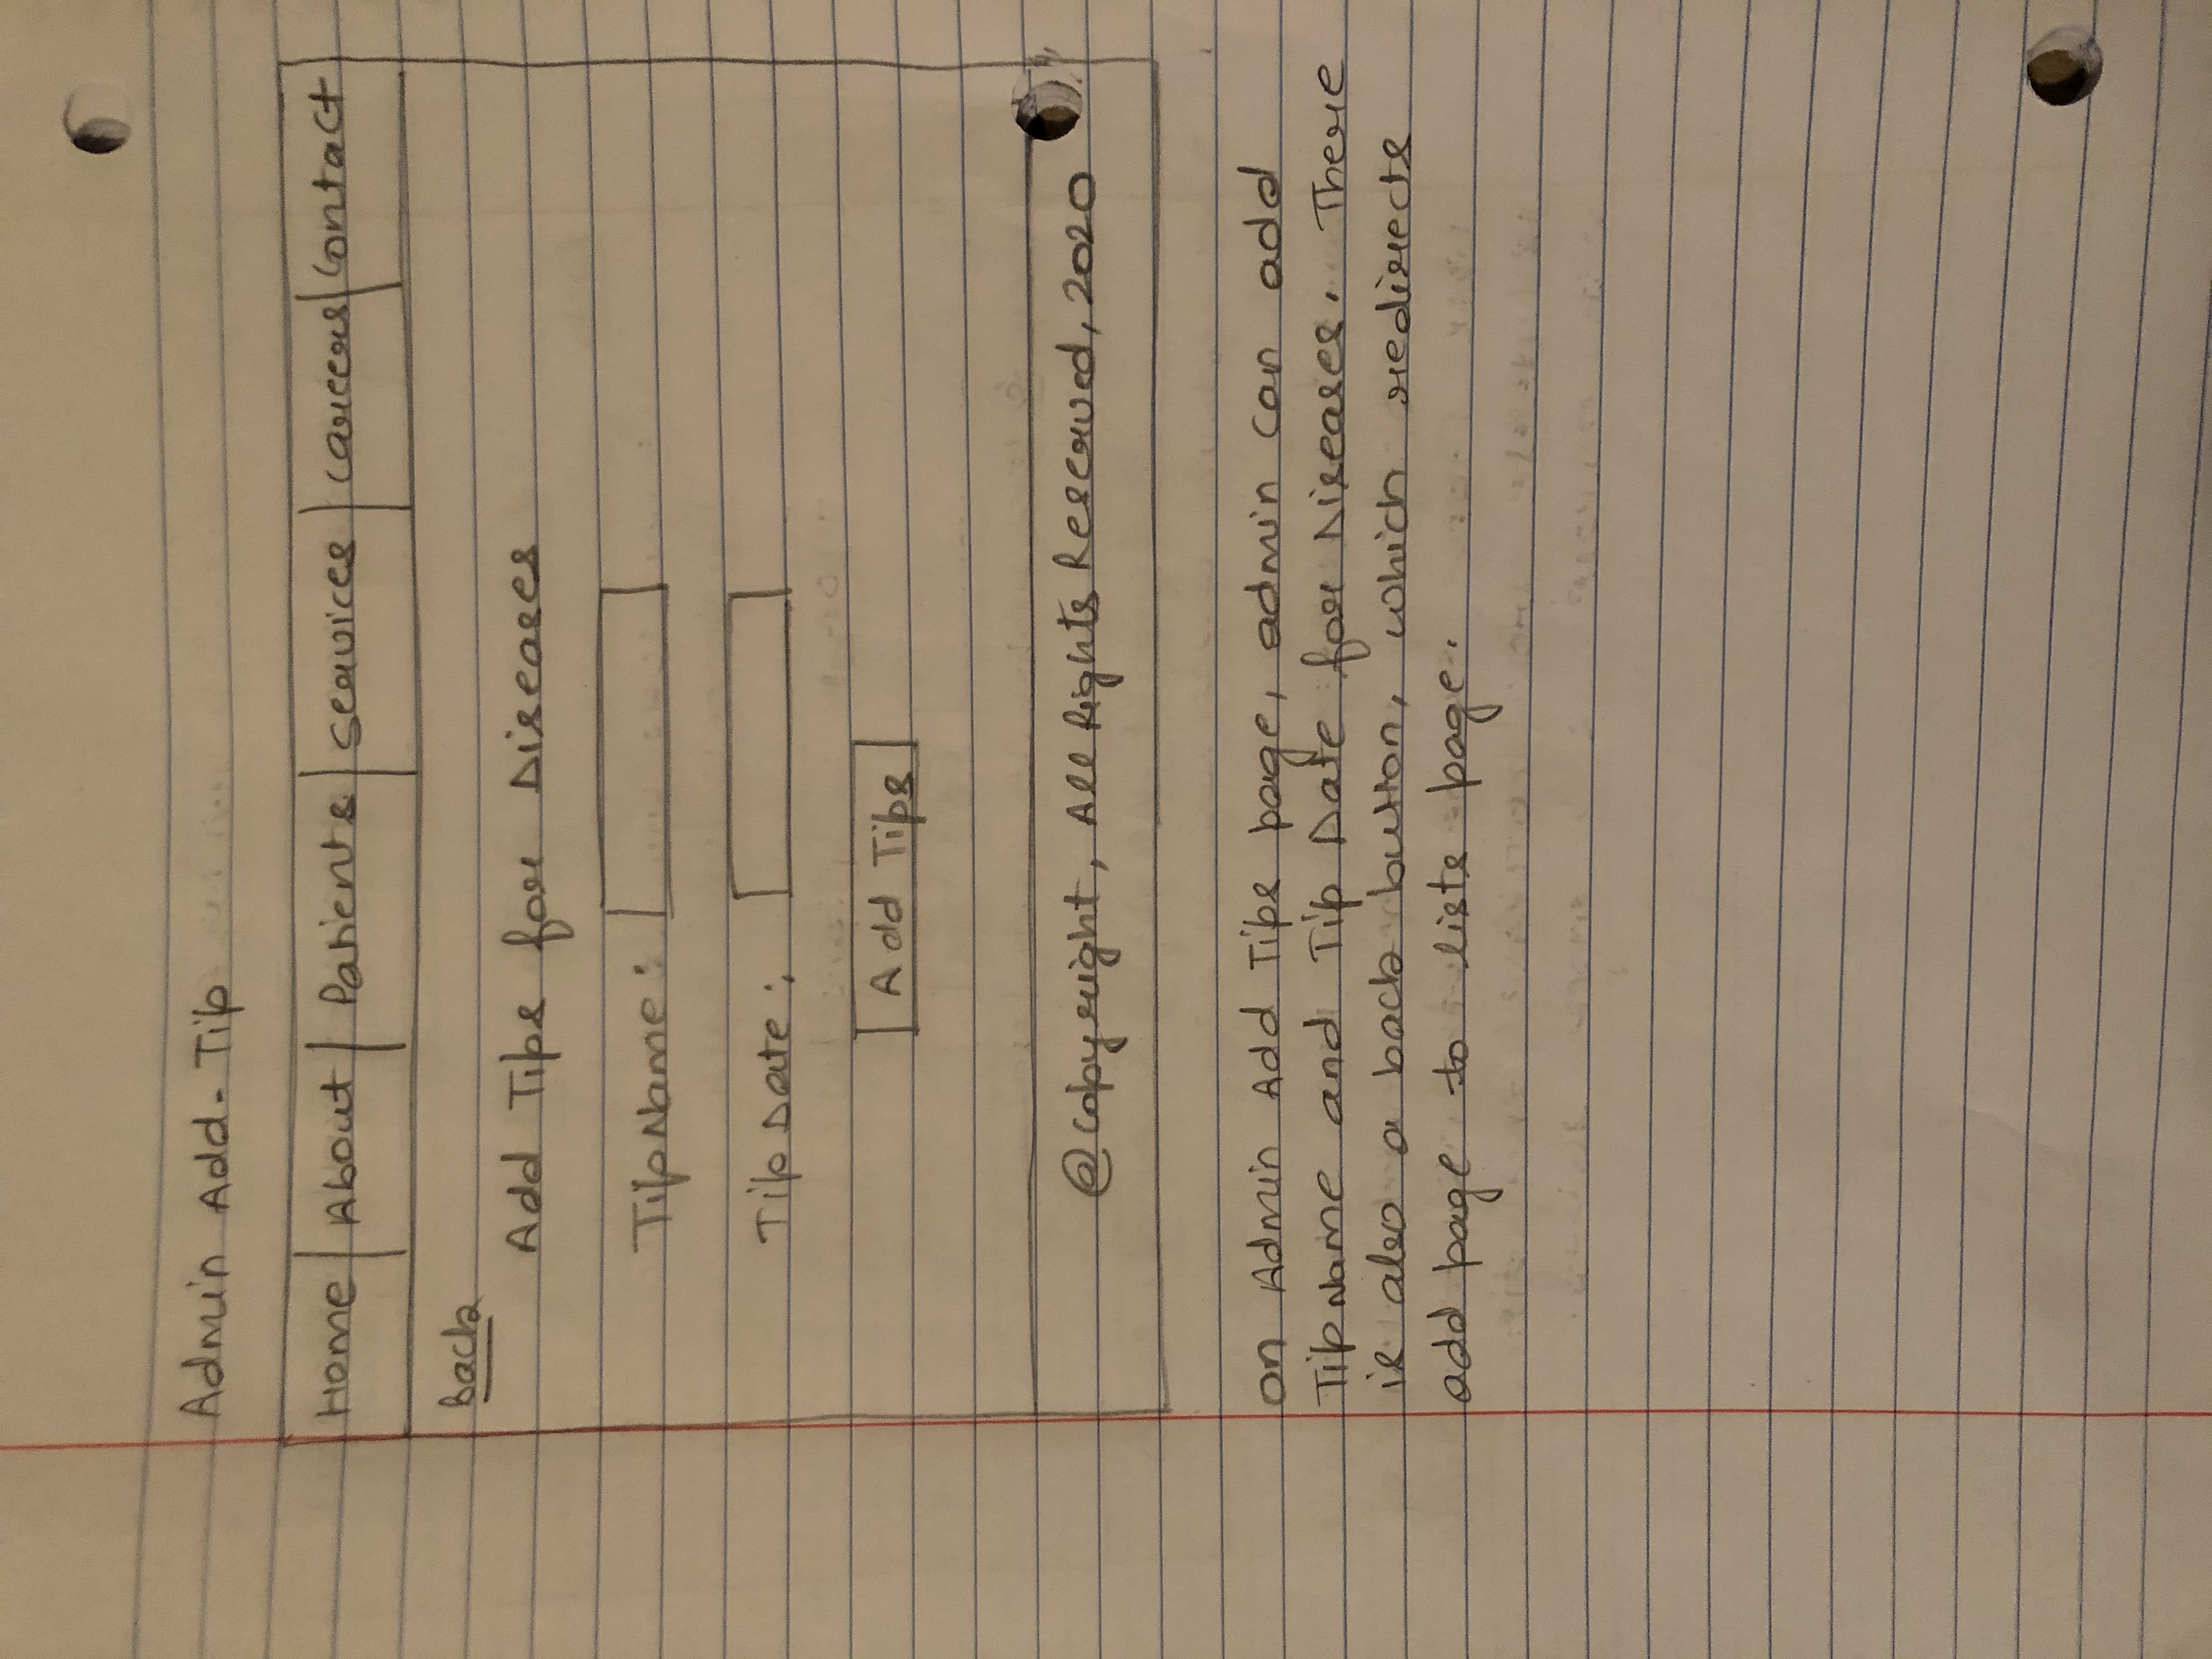 Admin Add-Tip
Home About Patients Services Careers Contact
Back
Add Tips for Diseases
TipName:
Tip Date:
Add Tips
@copyright, All Rights Reserved, 2020
on Admin Add Tips page, admin can add
TipName and Tip Date for Diseases. There
is also a back button, which redirects
add page to lists page.